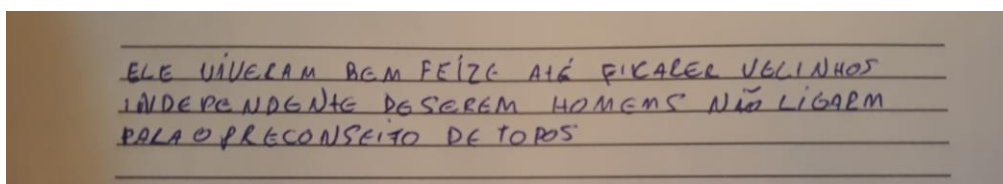 ELE VIVERAM BEM FEIZE ATÉ FICARER VELINHOS
INDEPENDENTE DESEREM HOMEMS NÃO LIGARM
PARA O PRECONSEITO DE TOPOS